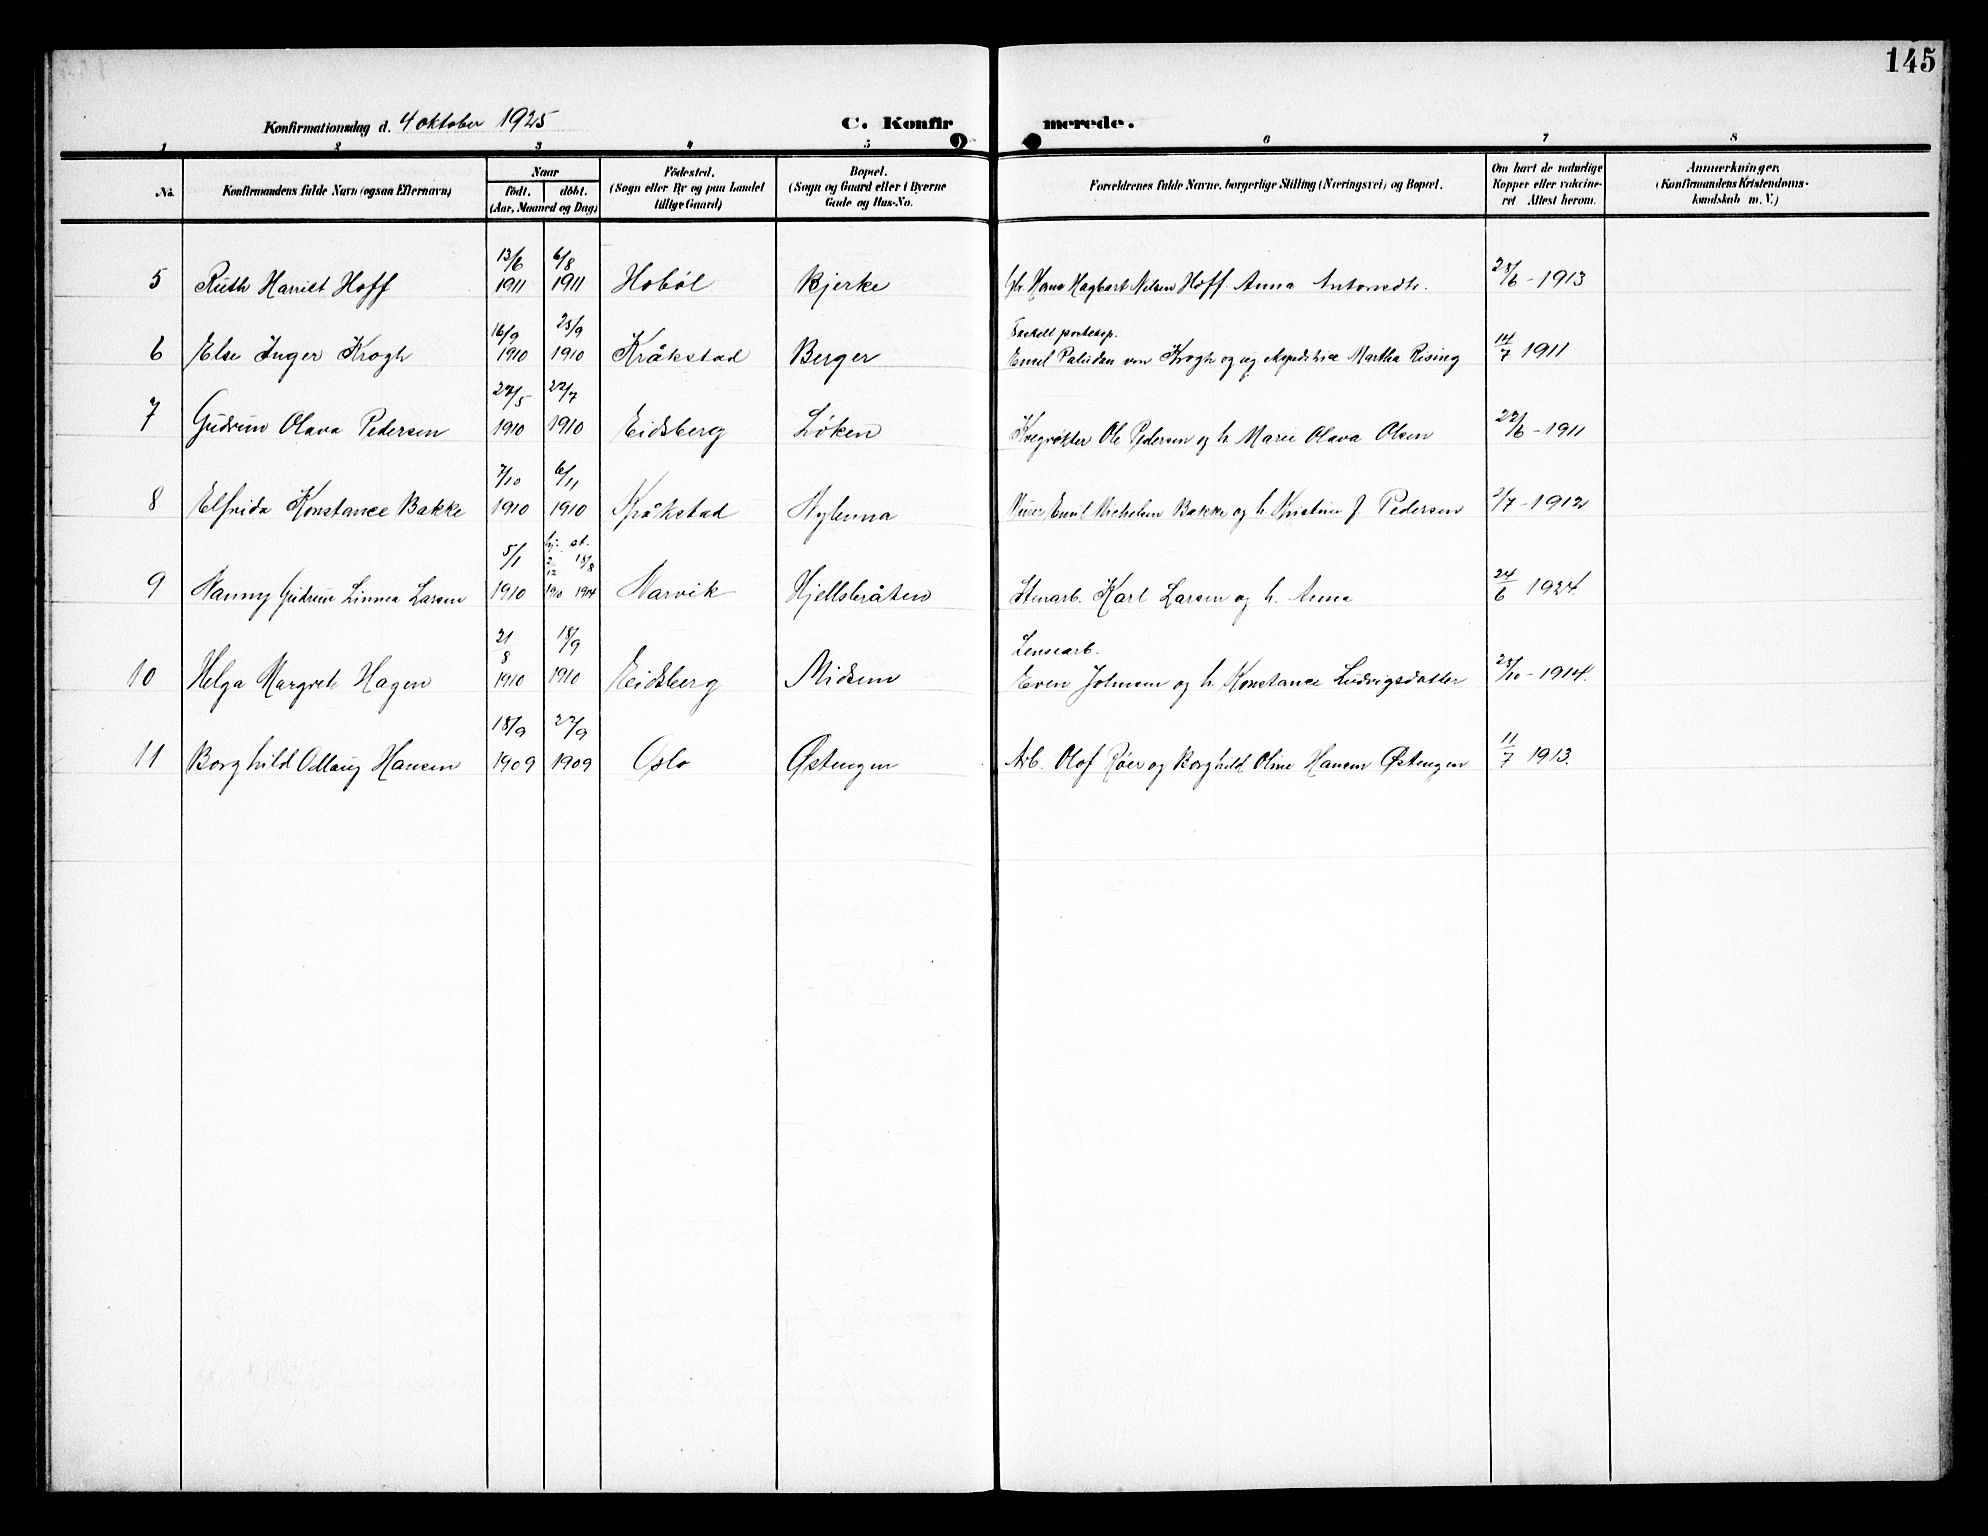 145
Konfirmationsdag d. 4 oktober 1925
C. Konfirmerede.
1 2 3 4 5 6 7 8
No.
Konfirmandens fulde Navn (ogsaa Efternavn)
Naar
födt. döbt.
(Aar, Maaned og Dag)
Födested.
(Sogn eller By og paa Landet
tillige Gaard)
Bopæl.
(Sogn og Gaard eller i Byerne
Gade og Hus-No.
Forældrenes fulde Navne, borgerlige Stilling (Næringsvei) og Bopæl.
Om havt de naturlige
Kopper eller vaccine-
ret Attest herom.
Anmærkninger.
(Konfirmandens Kristendoms-
kundskab m. V.)
13/6 6/8
5 Ruth Harriet Hoff 1911 1911 Hobøl Bjerke Hans Hagbart Nilsen Hoff Anna Antonsdtr. 28/6 - 1913
16/9 25/9
6 Else Inger Krogh 1910 1910 Kråkstad Berger Emil Paludan von Krogh og ug ekspeditrice Martha Rising 14/7 1911
27/5 22/7
7 Gudrun Olava Pedersen 1910 1910 Eidsberg Løken Kvegrøkter Ole Pedersen og h. Marie Olava Olsen 22/6 - 1911
7/10 6/11
8 Elfrida Konstance Bakke 1910 1910 Kråkstad Nylenna Emil Michelsen Bakke og h Kristine J. Pedersen 2/7 - 1912
5/1 hj. 2/12 st. 18/8
9 Nanny Gudrun Linnea Larsen 1910 1910 1914 Narvik Hjellsbråten Stenarb. Karl Larsen og h. Anna 24/6 1924.
21/8 18/9 Lensearb.
10 Helga Margrete Hagen 1910 1910 Eidsberg Midsem Even Johnsen og h. Konstance Ludvigsdatter 28/10 - 1914.
18/9 22/9
11 Borghild Odlaug Hansen 1909 1909 Oslo Østengen Arb. Olof Røer og Borghild Oline Hansen Østengen 11/7 1913.